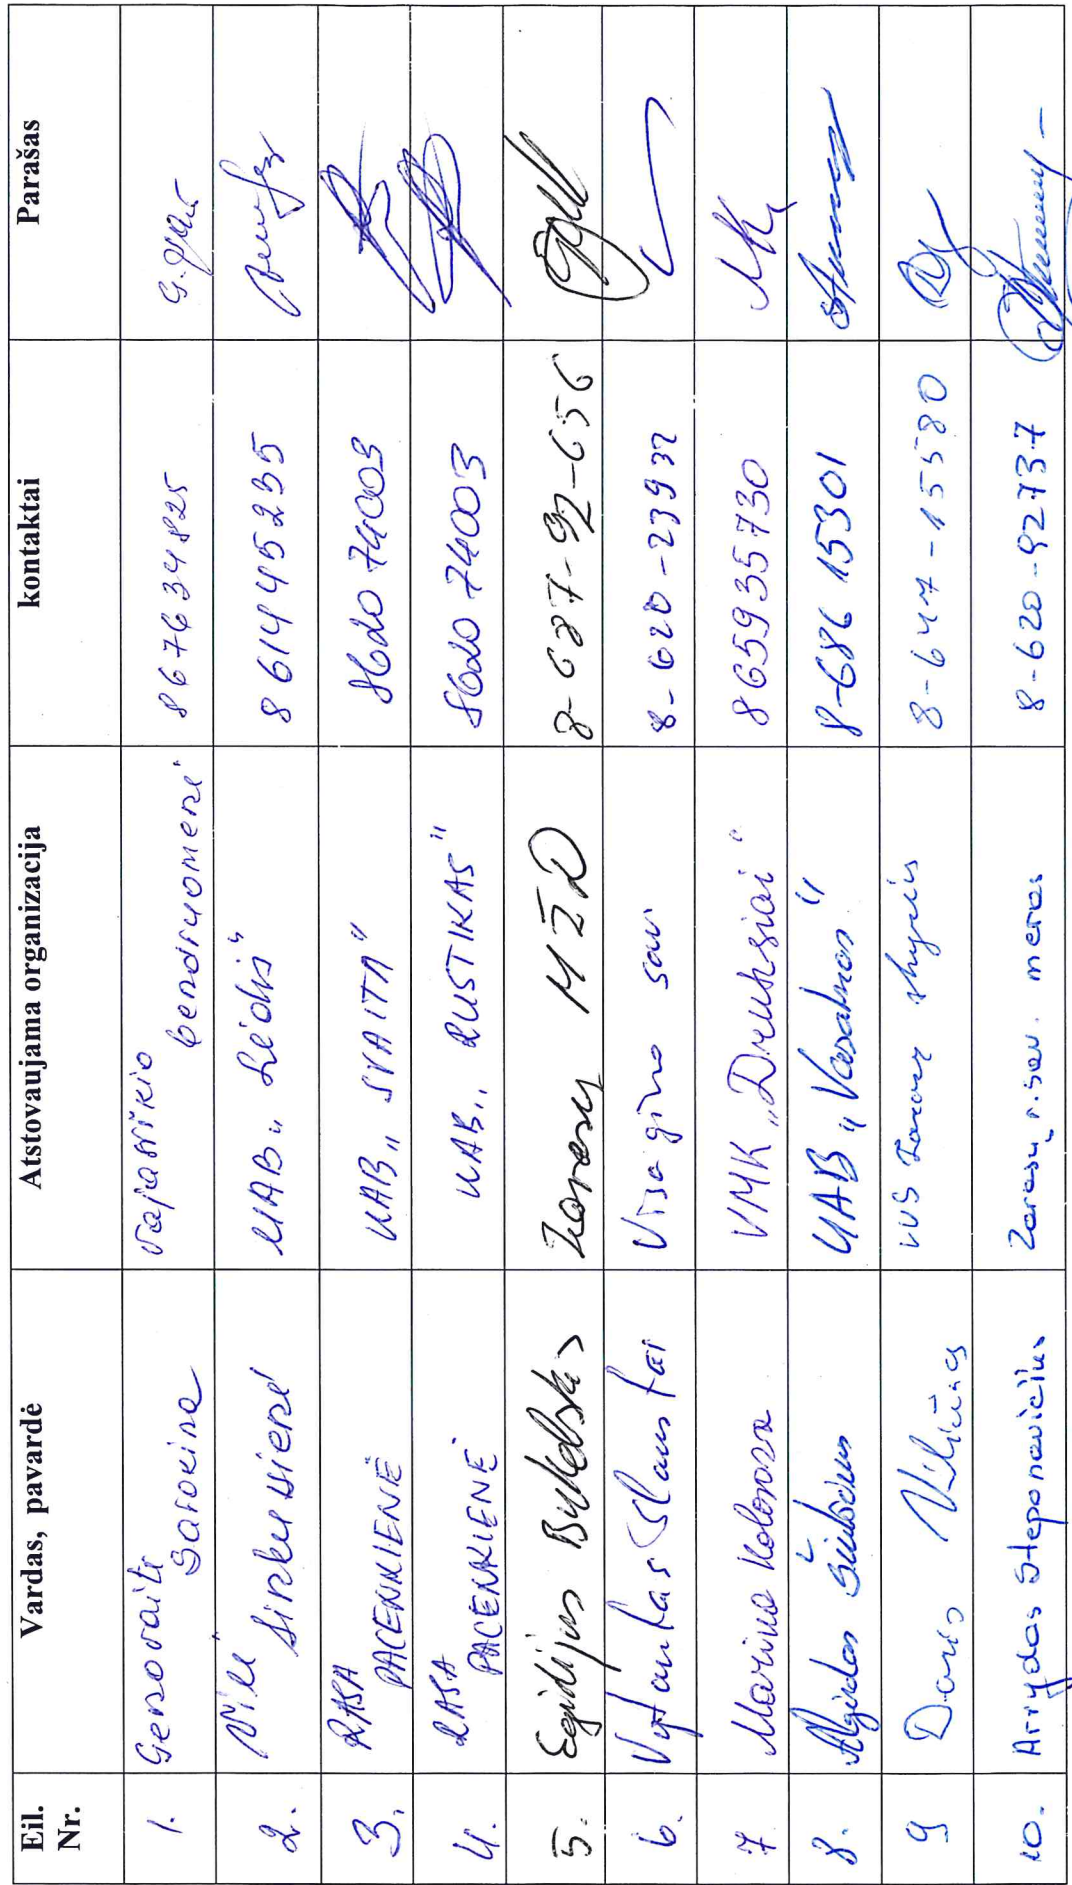 Eil. Nr. Vardas, pavardė Atstovaujama organizacija kontaktai Parašas
1. Genovaitė Sarokina Vajasiškio bendruomenė 867634825
2. Vilė Sinkevienė UAB „Lėdis" 861445235
3. RASA PACENKIENĖ UAB „SVAITA" 862074003
4. RASA PACENKIENĖ UAB „RUSTIKAS" 862074003
5. Egidijus Zarasų MŽD 8-687-92-656
6. Vytautas Visagino sav 8-620-23932
7 Marina VMK „Drūkšiai" 865935730
8. Algirdas UAB „Vasaknos" 8-686 15301
9 skyrius 8-647-15580
10. Arvydas Steponavičius Zarasų r. sav. meras 8-620-92737